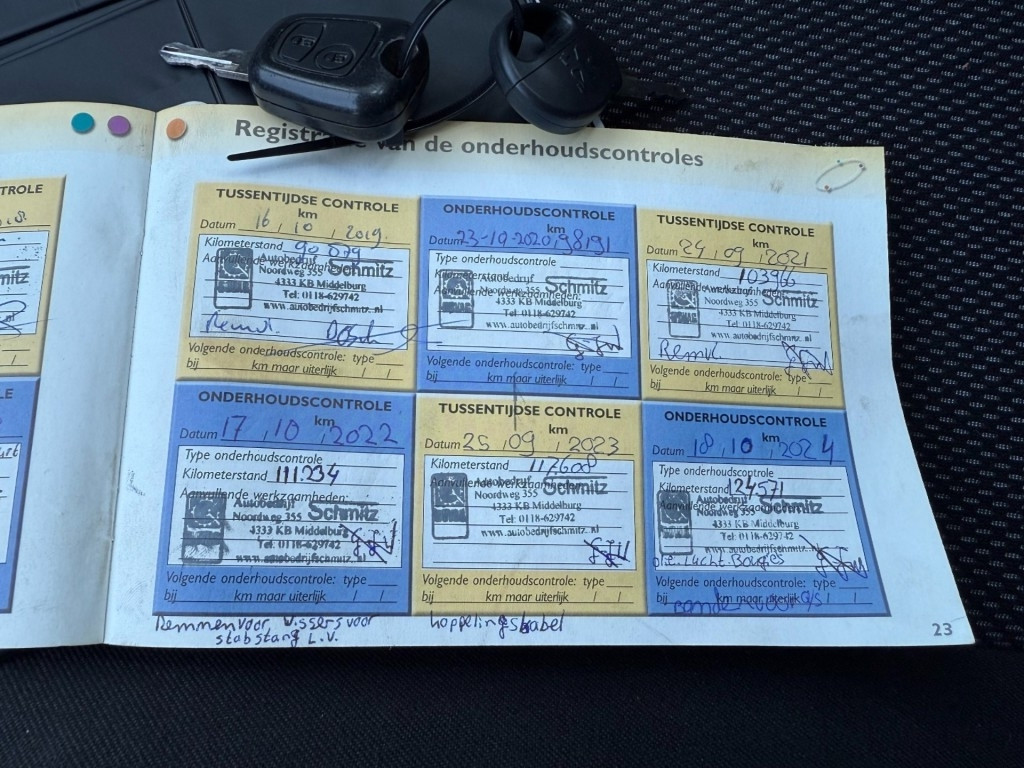 Registr van de onderhoudscontroles
TROLE
TUSSENTIJDSE CONTROLE
km
Datum 16 , 10 , 2019.
Kilometerstand 90 879
Autobedrijf Schmitz
Noordweg 355
4333 KB Middelburg
Tel: 0118-629742
www.autobedrijfschmitz.nl
Remvl.
Volgende onderhoudscontrole: type
bij km maar uiterlijk / /
ONDERHOUDSCONTROLE
km
Datum 23-10-2020, 98191
Type onderhoudscontrole
Kilometerstand
Aanvullende werkzaamheden:
Autobedrijf Schmitz
Noordweg 355
4333 KB Middelburg
Tel: 0118-629742
www.autobedrijfschmitz.nl
Volgende onderhoudscontrole: type
bij km maar uiterlijk / /
TUSSENTIJDSE CONTROLE
km
Datum 24 , 09 , 2021
Kilometerstand 103966
Aanvullende werkzaamheden:
Autobedrijf Schmitz
Noordweg 355
4333 KB Middelburg
Tel: 0118-629742
www.autobedrijfschmitz.nl
Remvl.
Volgende onderhoudscontrole: type
bij km maar uiterlijk / /
ONDERHOUDSCONTROLE
km
Datum 17 , 10 , 2022
Type onderhoudscontrole
Kilometerstand 111.234
Aanvullende werkzaamheden:
Autobedrijf Schmitz
Noordweg 355
4333 KB Middelburg
Tel: 0118-629742
www.autobedrijfschmitz.nl
Volgende onderhoudscontrole: type
bij km maar uiterlijk / /
Remmen voor, Wissers voor
stabstang L.V.
TUSSENTIJDSE CONTROLE
km
Datum 25 , 09 , 2023
Kilometerstand 117.608
Aanvullende werkzaamheden:
Autobedrijf Schmitz
Noordweg 355
4333 KB Middelburg
Tel: 0118-629742
www.autobedrijfschmitz.nl
Volgende onderhoudscontrole: type
bij km maar uiterlijk / /
koppelingskabel
ONDERHOUDSCONTROLE
km
Datum 18 , 10 , 2024
Type onderhoudscontrole
Kilometerstand 124571
Aanvullende werkzaamheden:
Autobedrijf Schmitz
Noordweg 355
4333 KB Middelburg
Tel: 0118-629742
www.autobedrijfschmitz.nl
olie. Lucht. Bougies
Volgende onderhoudscontrole: type
bij km maar uiterlijk / /
23